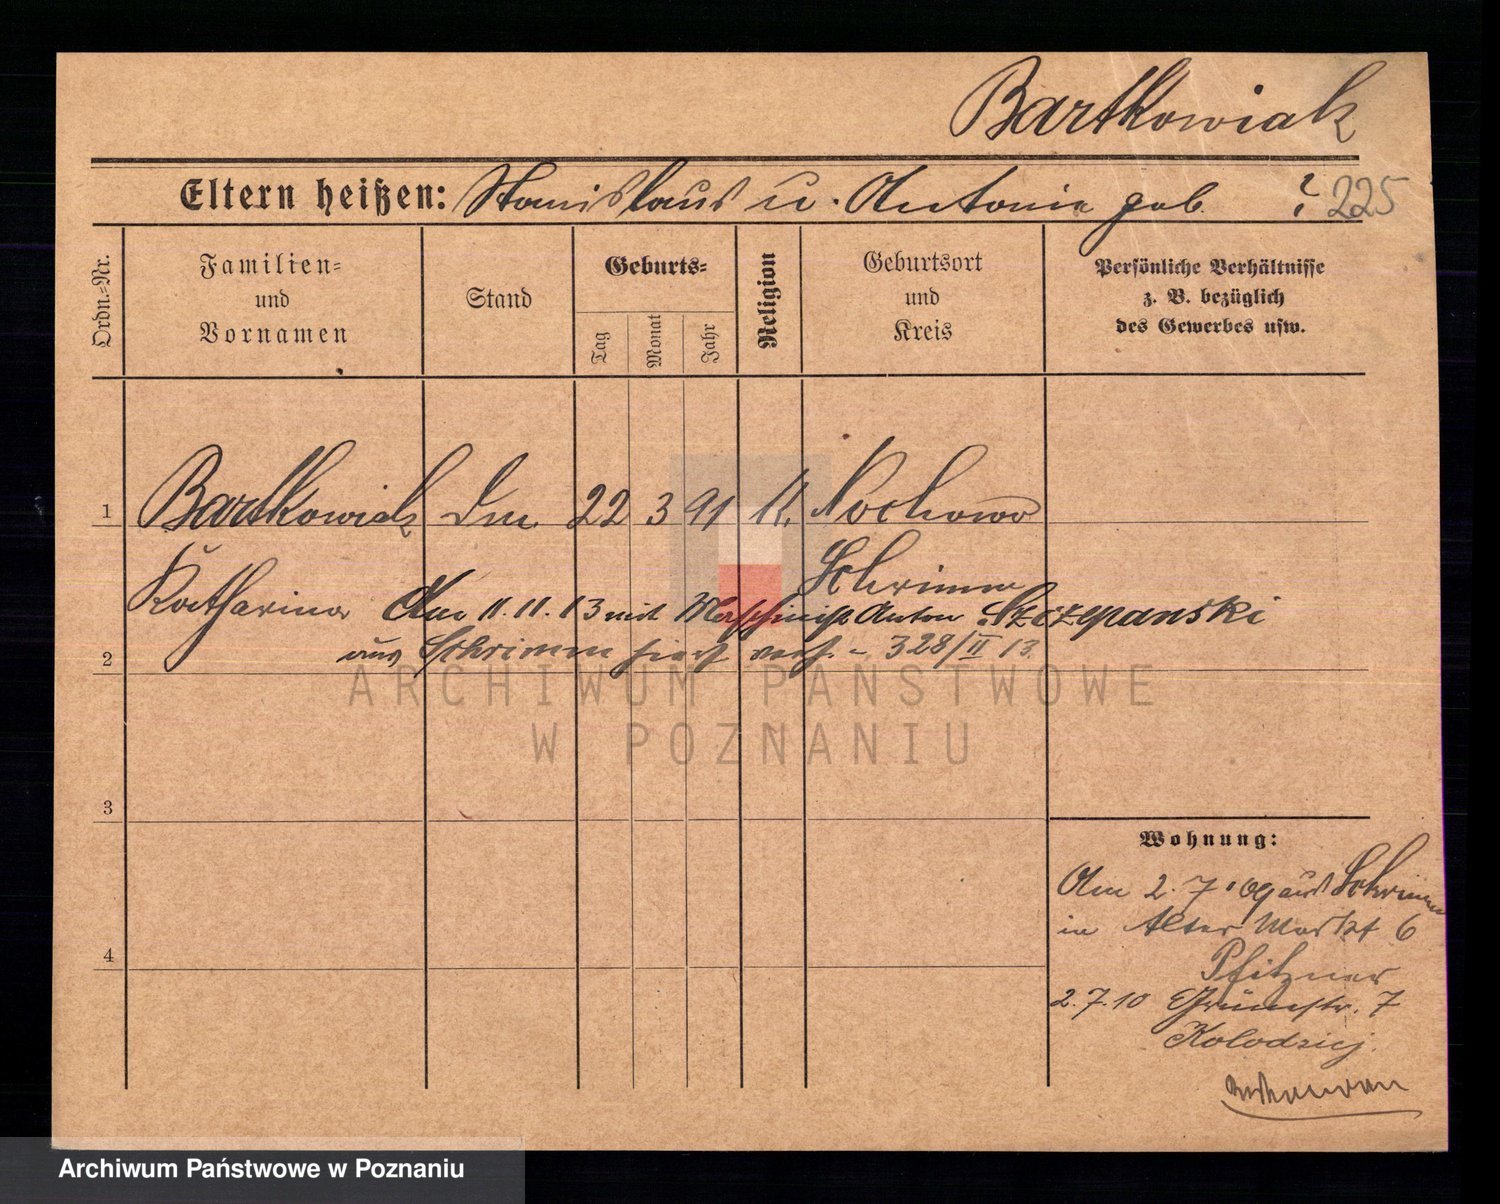 Bartkowiak
Eltern heißen: Stanislaus u. Antonie geb. ? 225
Ordn.-Nr.
Familien-
und
Vornamen
Stand
Geburts-
Tag
Monat
Jahr
Religion
Geburtsort
und
Kreis
Persönliche Verhältnisse
z. B. bezüglich
des Gewerbes usw.
1 Bartkowiak 22 3 91 K. Nochowo
Katharina Schrimm
Am 11.11.13 mit Anton Szczepanski
2 aus Schrimm hier 328/II 13.
ARCHIWUM PAŃSTWOWE
W POZNANIU
3
4
Wohnung:
Am 2. 7. 09 aus Schrimm
in Alter Markt 6
Pfitzner
2.7.10 Grünestr. 7
Kolodziej
Archiwum Państwowe w Poznaniu